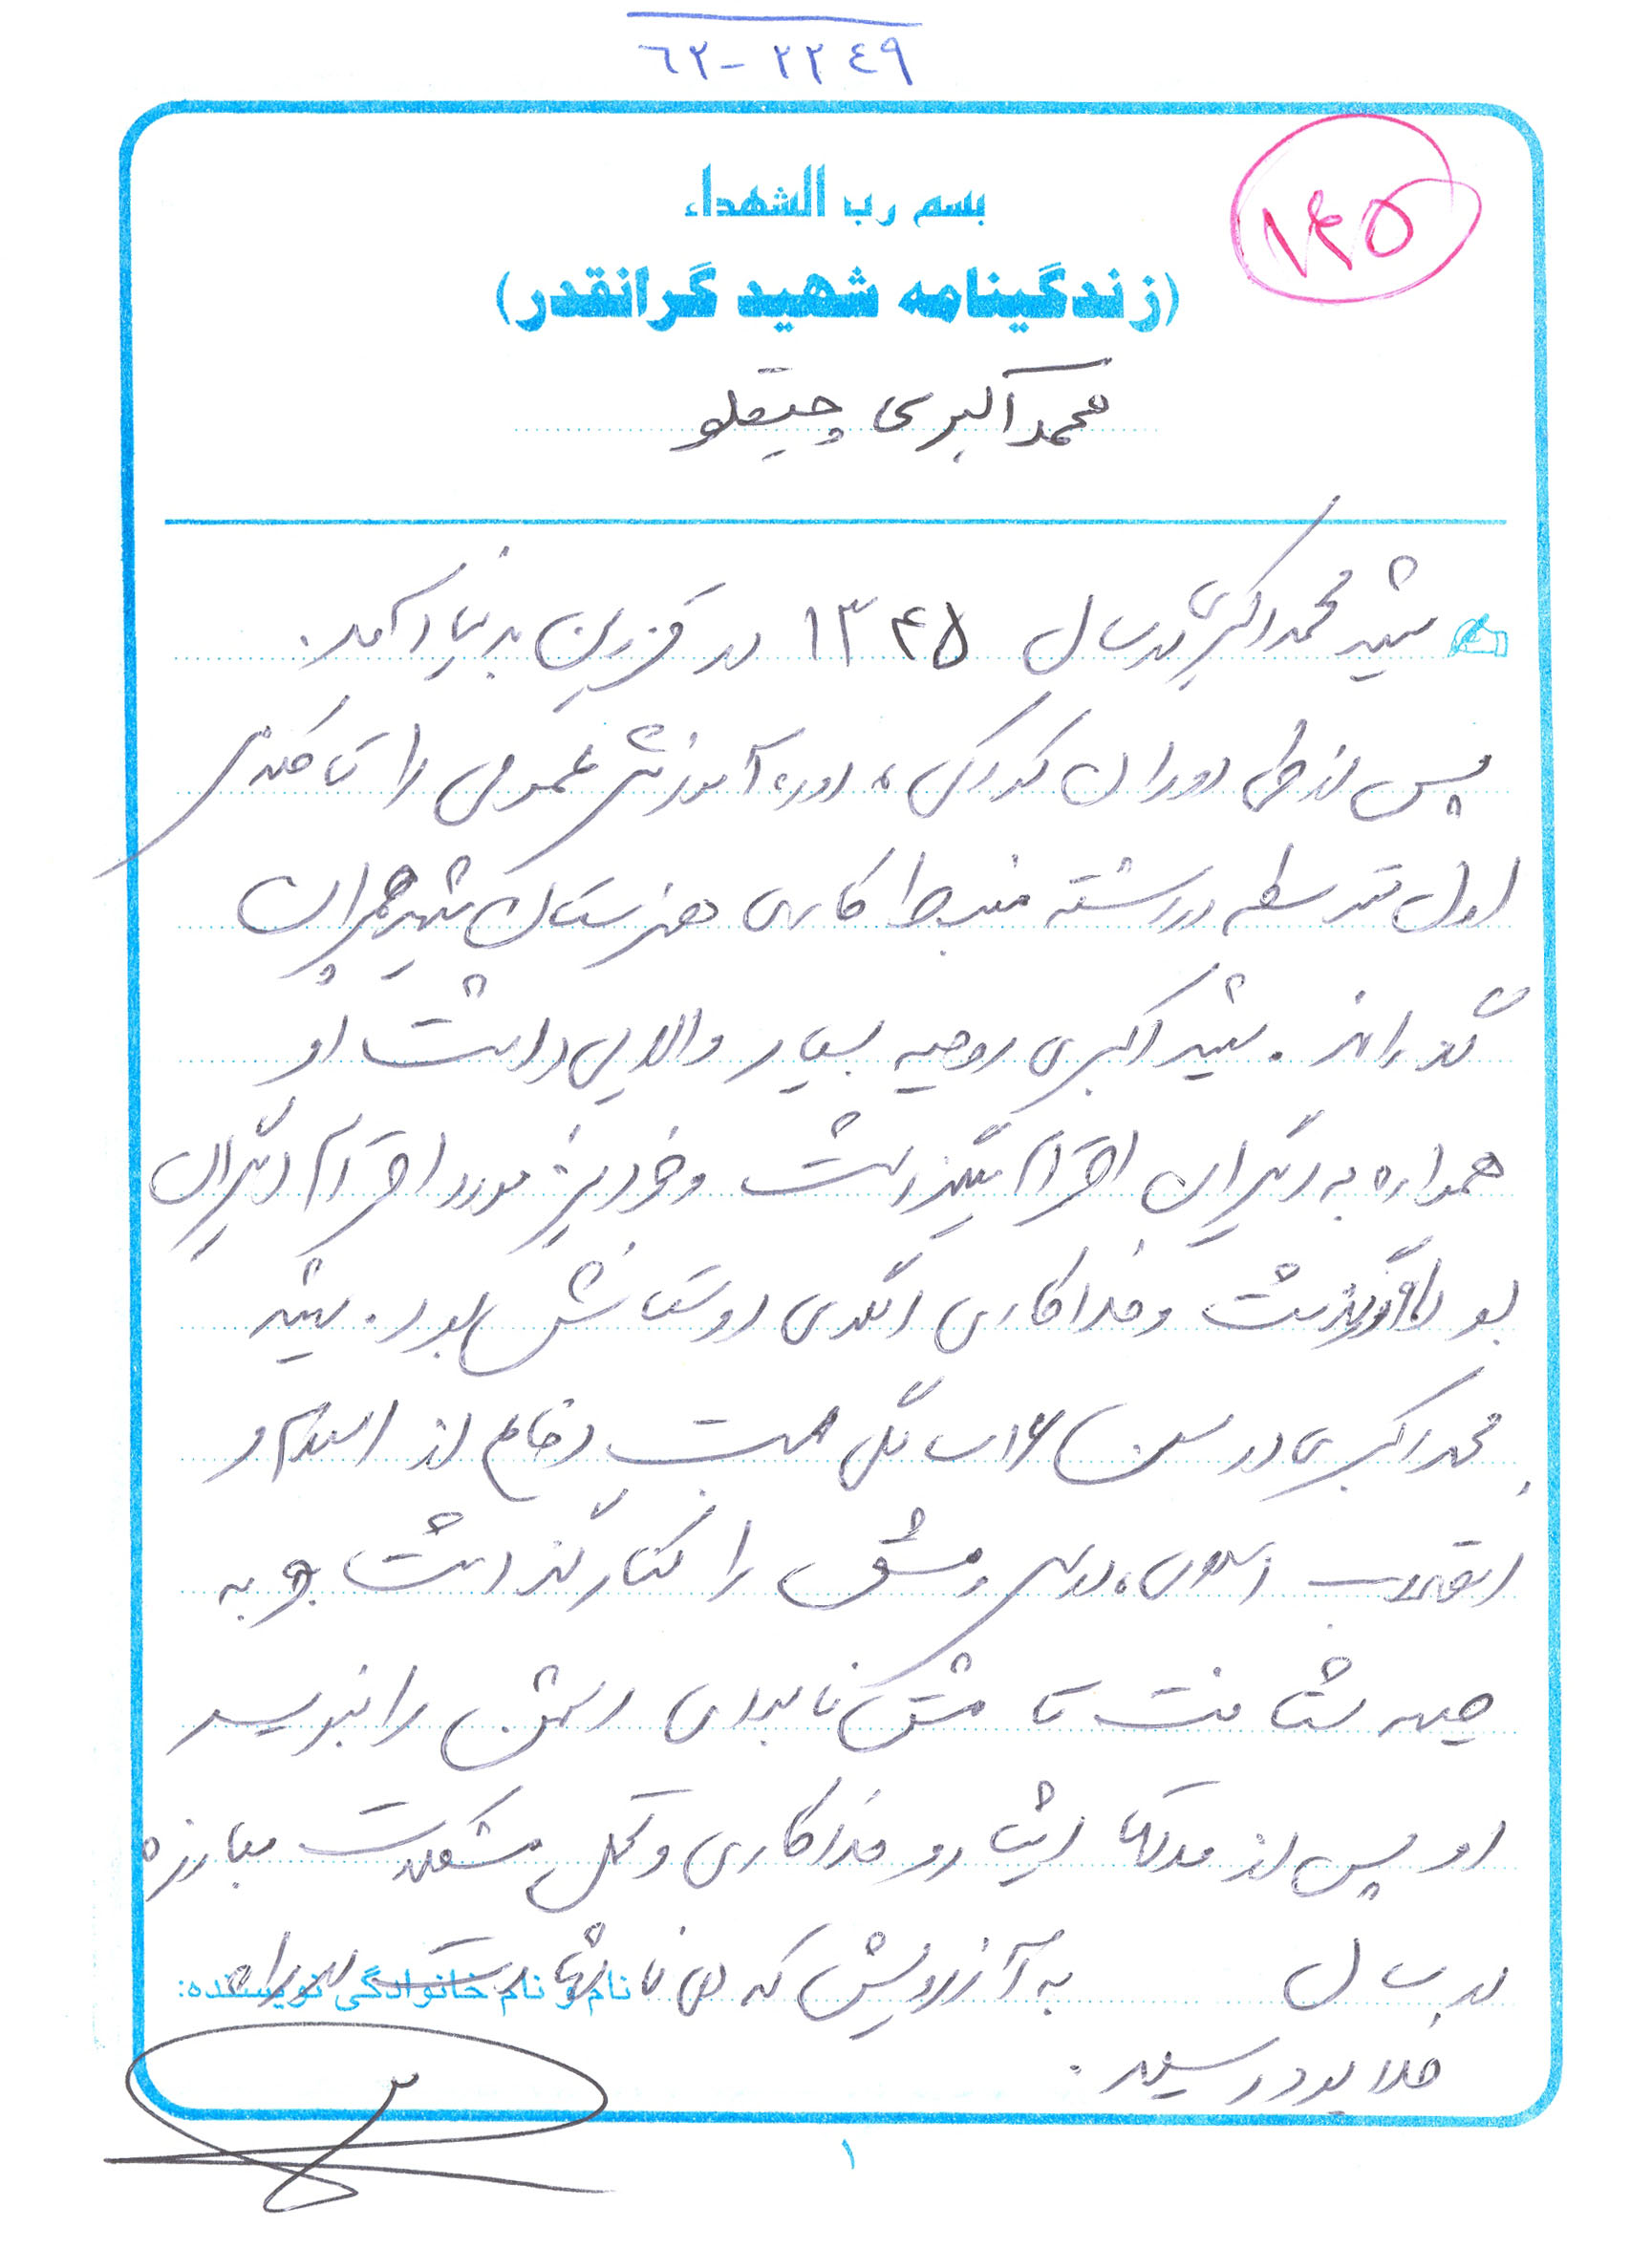 ٦٢-٢٢٤٩
١٤٥
بسم رب الشهداء
(زندگینامه شهید گرانقدر)
محمد اکبری چیقلو
شهید محمد اکبری در سال ۱۳۴۵ در قزوین بدنیا آمد.
پس از طی دوران کودکی، دوره آموزش عمومی را تا مقطع
اول متوسطه در رشته ضبط کاری هنرستان شهید چمران
گذراند. شهید اکبری روحیه بسیار والایی داشت او
همواره به دیگران احترام میگذاشت و خود نیز مورد احترام دیگران
بود گذشت و فداکاری الگوی دوستانش بود. شهید
محمد اکبری در سن ۱۶ سالگی جهت دفاع از اسلام و
انقلاب اسلامی، درس و مشق را کنار گذاشت و به
جبهه شتافت تا مشق نابودی دشمن را بنویسد
او پس از مدتها ایثار و فداکاری و تحمل مشکلات مبارزه
در سال به آرزویش که همانا شهادت در راه
خدا بود رسید.
نام و نام خانوادگی نویسنده:
۱